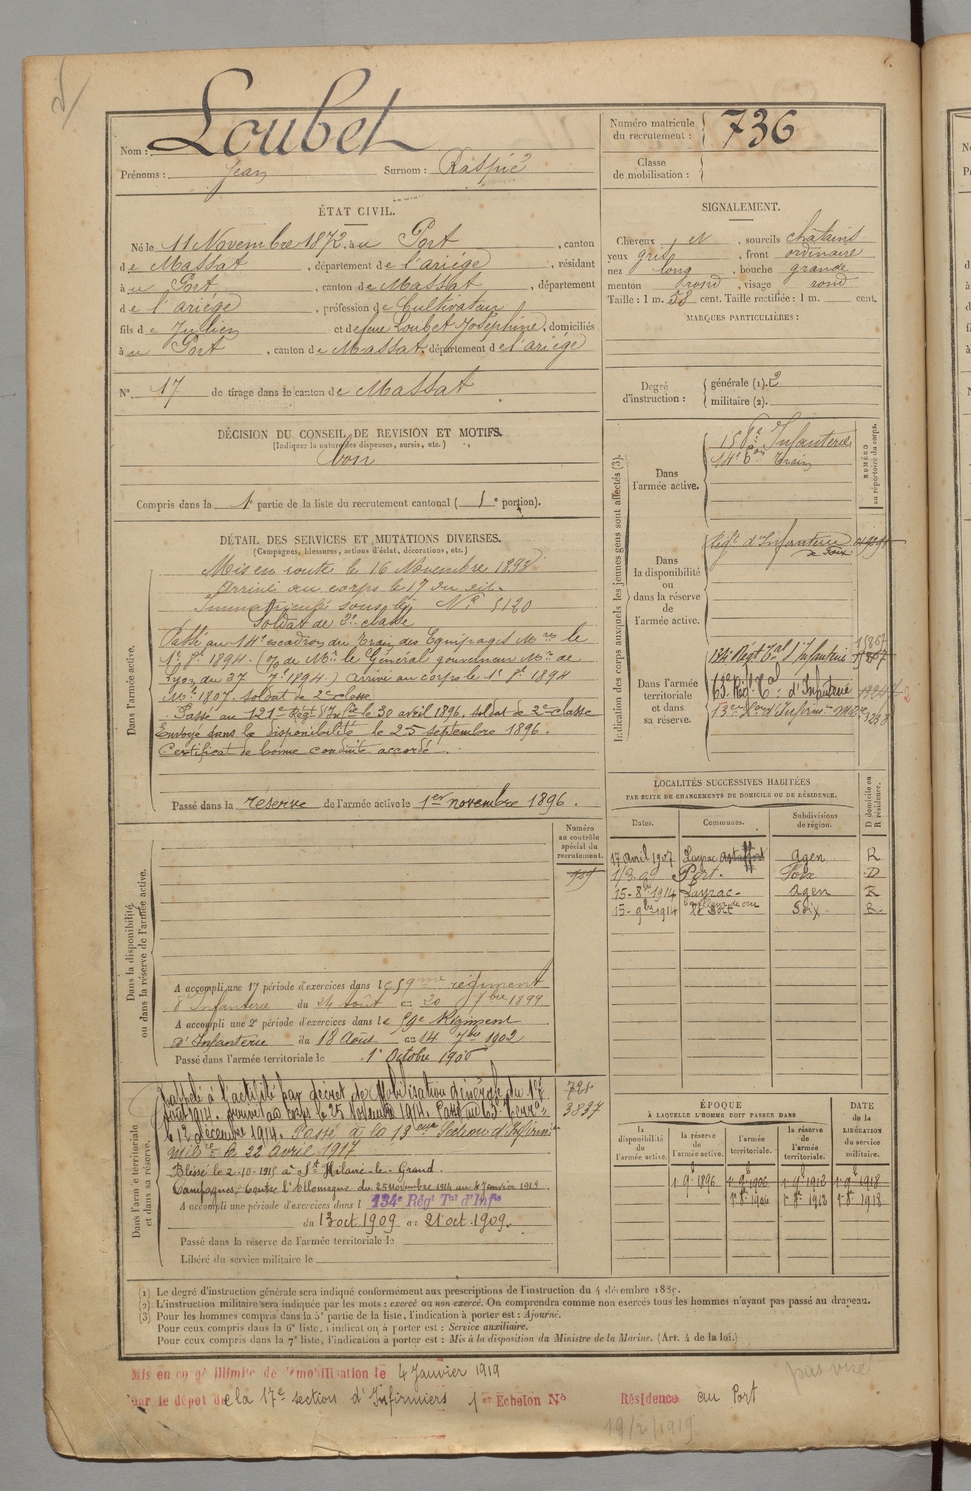 Loubet
Nom :
Prénoms : Jean Surnom : Raspié
Numéro matricule
du recrutement : 736
Classe
de mobilisation :
ÉTAT CIVIL.
Né le 11 Novembre 1872, au Port, canton
de Massat, département de l'ariège, résidant
à u Port, canton de Massat, département
de l'ariège, profession de Cultivateur
fils de Julien et de feue Loubet Joséphine, domiciliés
à u Port, canton de Massat, département de l'ariège
N° 17 de tirage dans le canton de Massat
SIGNALEMENT.
Cheveux et, sourcils chatains
yeux gris, front ordinaire
nez long, bouche grande
menton rond, visage rond
Taille : 1 m. 58 cent. Taille rectifiée : 1 m. cent.
MARQUES PARTICULIÈRES :
Degré
d'instruction :
générale (1). 2
militaire (2).
DÉCISION DU CONSEIL DE REVISION ET MOTIFS.
(Indiquer la nature des dispenses, sursis, etc.)
bon
Compris dans la 1 partie de la liste du recrutement cantonal (1e portion).
DÉTAIL DES SERVICES ET MUTATIONS DIVERSES.
(Campagnes, blessures, actions d'éclat, décorations, etc.)
Dans l'armée active.
Mis en route le 16 Novembre 1893
Arrivé au corps le 17 du dit.
Immatriculé sous le N° 5120
Soldat de 2e classe
Passé au 14e escadron du Train des Equipages Mres le
1er 8bre 1894. ( de Mr le Général gouverneur Mre de
Lyon du 7bre 1894.) Arrivé au corps le 1er 8bre 1894
Mle 1807. soldat de 2e classe
Passé au 121e Régt d'Infie le 30 avril 1896, soldat de 2e classe
Envoyé dans la disponibilité le 25 septembre 1896.
Certificat de bonne conduite accordé
Passé dans la réserve de l'armée active le 1er novembre 1896.
Indication des corps auxquels les jeunes gens sont affectés (3).
NUMÉRO
au répertoire du corps.
Dans
l'armée active.
158e d'Infanterie
14e Eon Train
Dans
la disponibilité
ou
dans la réserve
de
l'armée active.
Régt d'Infanterie
de Foix
Dans l'armée
territoriale
et dans
sa réserve.
134e Regt Tal d'Infanterie
63e Régt Tal d'Infanterie
13e Son d'Infirm Mres
LOCALITÉS SUCCESSIVES HABITÉES
PAR SUITE DE CHANGEMENTS DE DOMICILE OU DE RÉSIDENCE.
D domicile ou
R résidence.
Dates. Communes. Subdivisions
de région.
17 avril 1907 Layrac Astaffort Agen R
Port. Foix D
15-8bre 1914 Layrac Agen R
15-9bre 1914 le Port Foix R
Dans la disponibilité
ou dans la réserve de l'armée active.
Numéro
au contrôle
spécial du
recrutement.
A accompli une 1e période d'exercices dans le 59me régiment
d'Infanterie du 24 Août au 20 7bre 1899
A accompli une 2e période d'exercices dans le 59e Régiment
d'Infanterie du 18 Août au 14 7bre 1902
Passé dans l'armée territoriale le 1er Octobre 1906
Dans l'armée territoriale
et dans sa réserve.
Rappelé à l'activité par décret de Mobilisation Générale du 1er
Août 1914. Arrivé au corps le 25 Novembre 1914. Passé au 63e Terral
le 12 décembre 1914. Passé à la 13eme Section d'Infirm
Milres le 22 avril 1917.
Blessé le 2-10-1915 à St Hilaire-le-Grand.
Campagnes: Contre l'Allemagne du 25 Novembre 1914 au 4 Janvier 1919
A accompli une période d'exercices dans l 134e Régt Tal d'Infie
du 13 oct 1909 au 21 oct. 1909.
Passé dans la réserve de l'armée territoriale le
Libéré du service militaire le
3837
ÉPOQUE
À LAQUELLE L'HOMME DOIT PASSER DANS
DATE
de la
LIBÉRATION
du service
militaire.
la
disponibilité
de
l'armée active.
la réserve
de
l'armée active.
l'armée
territoriale.
la réserve
de
l'armée
territoriale.
1 9bre 1896 1 9bre 1906 1 9bre 1912 1 9bre 1918
1er 8bre 1906 1er 8bre 1912 1er 8bre 1918
(1) Le degré d'instruction générale sera indiqué conformément aux prescriptions de l'instruction du 4 décembre 1889.
(2) L'instruction militaire sera indiquée par les mots : exercé ou non exercé. On comprendra comme non exercés tous les hommes n'ayant pas passé au drapeau.
(3) Pour les hommes compris dans la 5e partie de la liste, l'indication à porter est : Ajourné.
Pour ceux compris dans la 6e liste, l'indication à porter est : Service auxiliaire.
Pour ceux compris dans la 7e liste, l'indication à porter est : Mis à la disposition du Ministre de la Marine. (Art. 4 de la loi.)
Mis en congé illimité de démobilisation le 4 Janvier 1919
par le dépôt de la 17e section d'Infirmiers 1er Echelon N° Résidence au Port
pas vue
19/2/1919